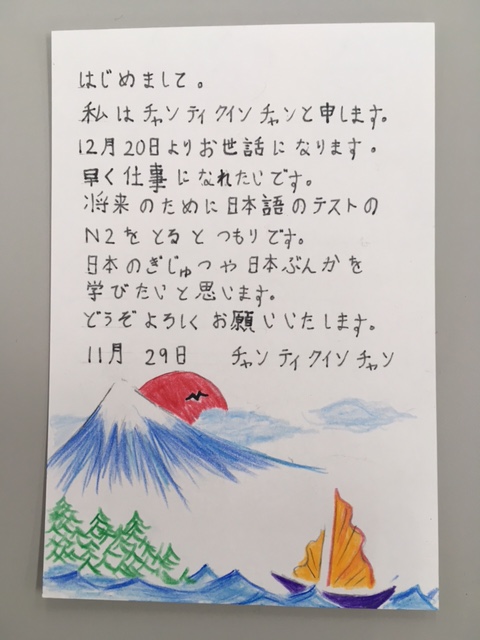 はじめまして。
私はチャンティクインチャンと申します。
12月20日よりお世話になります。
早く仕事になれたいです。
将来のために日本語のテストの
N2をとるとつもりです。
日本のぎじゅつや日本ぶんかを
学びたいと思います。
どうぞよろしくお願いいたします。
11月 29日 チャンティクインチャン